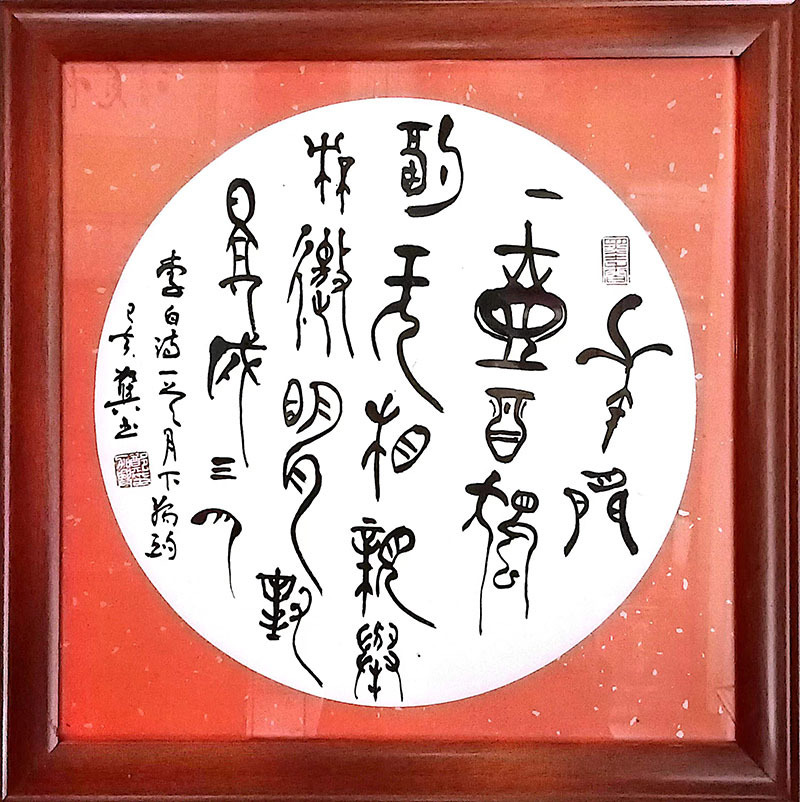 花間
一壺酒獨
酌无相親舉
杯邀明月對
影成三人
李白詩一首月下獨酌
己亥書